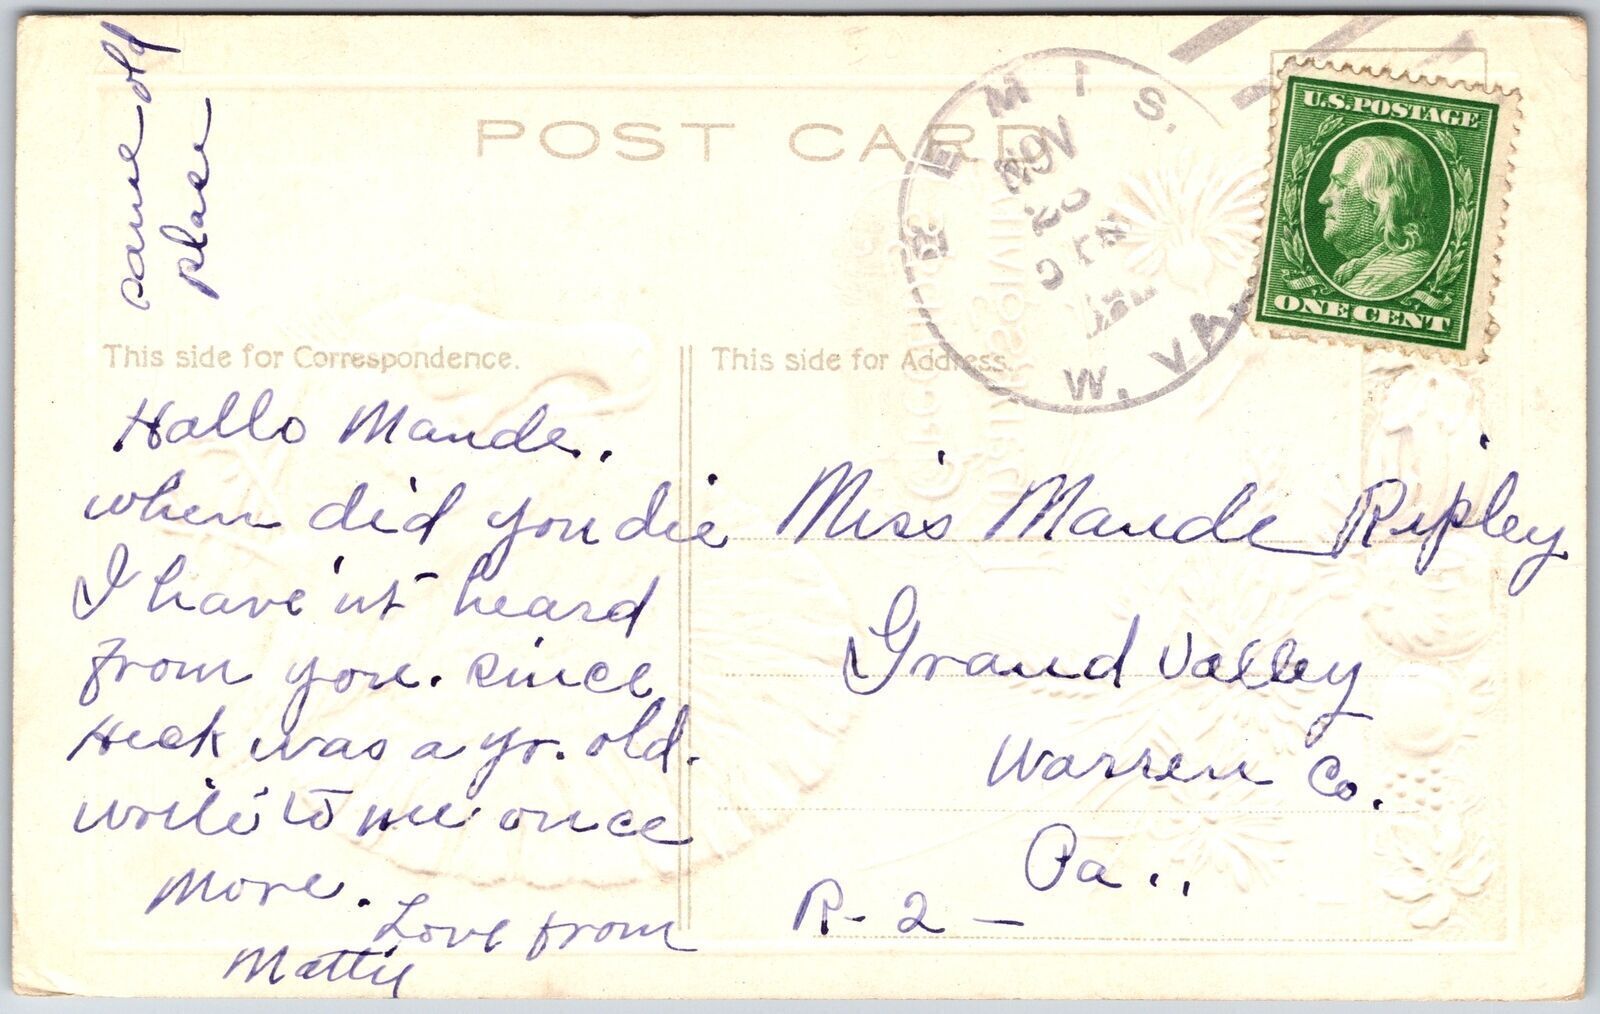 same old
place
POST CARD
BEMIS.
NOV
20
W. VA.
U.S. POSTAGE
ONE CENT
This side for Correspondence.
This side for Address.
Hallo Maude.
when did you die
I have'nt heard
from you. since
Heck was a yr. old.
write to me once
more.
Love from
Mattie
Miss Maude Ripley
Grand Valley
Warren Co.
Pa..
R-2-